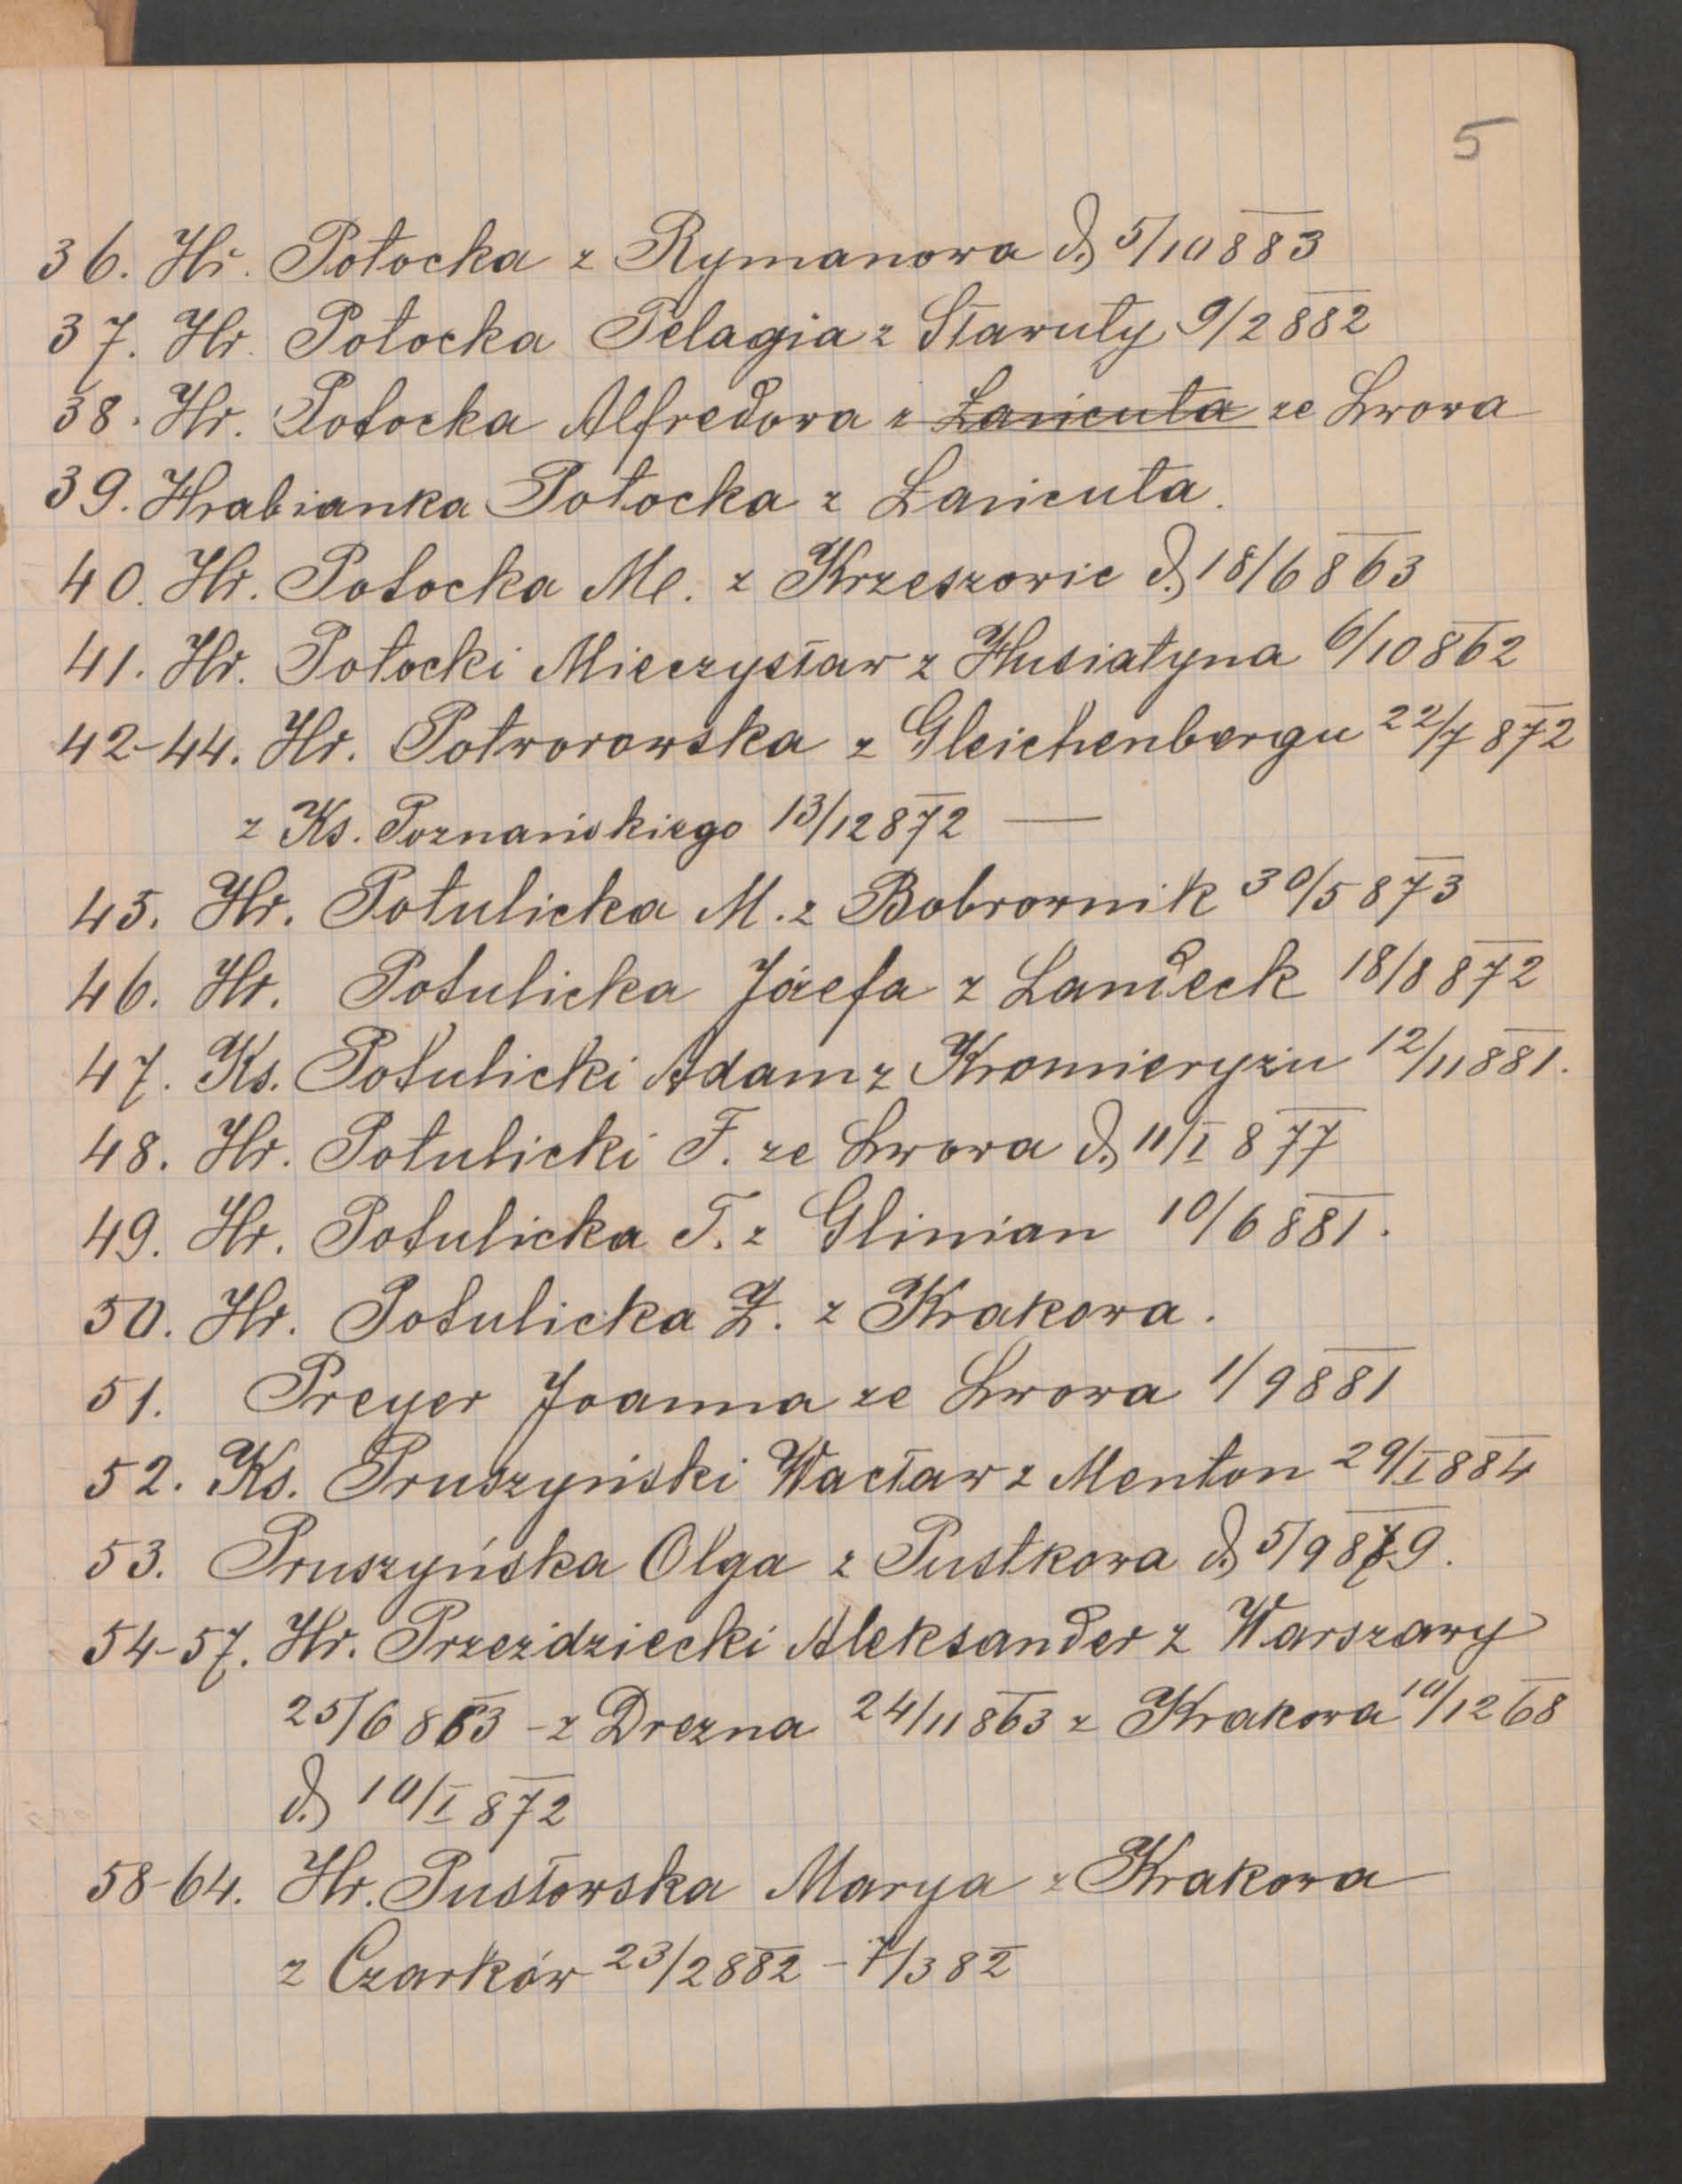 5
36. Hr. Potocka z Rymanowa d. 5/10 883
37. Hr. Potocka Pelagia z Sławuty 9/2 882
38. Hr. Potocka Alfredowa z Łańcuta ze Lwowa
39. Hrabianka Potocka z Łańcuta.
40. Hr. Potocka M. z Krzeszowic d. 18/6 863
41. Hr. Potocki Mieczysław z Husiatyna 6/10 862
42-44. Hr. Potworowska z Gleichenbergu 22/7 872
z Ks. Poznańskiego 13/12 872 —
45. Hr. Potulicka M. z Bobrownik 30/5 873
46. Hr. Potulicka Józefa z Landeck 18/8 872
47. Ks. Potulicki Adam z Kromieryżu 12/11 881.
48. Hr. Potulicki F. ze Lwowa d. 11/I 877
49. Hr. Potulicka T. z Glinian 10/6 881.
50. Hr. Potulicka Z. z Krakowa.
51. Preyer Joanna ze Lwowa 1/9 881
52. Ks. Pruszyński Wacław z Menton 29/I 884
53. Pruszyńska Olga z Pustkowa d. 5/9 879.
54-57. Hr. Przeździecki Aleksander z Warszawy
25/6 863 - z Drezna 24/11 863 z Krakowa 10/12 68
d. 10/I 872
58-64. Hr. Pusłowska Marya z Krakowa
z Czarków 23/2 882 - 7/3 82